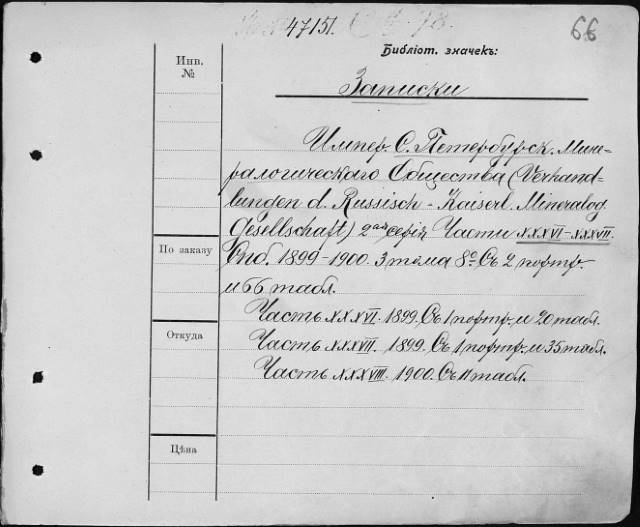 47151.
66
Библіот. значекъ:
Инв. №
Записки
Импер. С. Петербургск. Мине-
ралогическаго Общества (Verhand-
lunden d. Russisch-Kaiserl. Mineralog.
Gesellschaft) 2ая серія Части XXXVI-XXXVII.
По заказу
Спб. 1899-1900. 3 тома 8º. Съ 2 портр.
и 66 табл.
Часть XXXVI. 1899. Съ 1 портр. и 20 табл.
Откуда
Часть XXXVII. 1899. Съ 1 портр. и 35 табл.
Часть XXXVIII. 1900. Съ 11 табл.
Цѣна